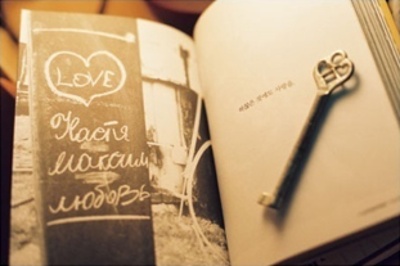 LOVE
Настя
максим
любовь